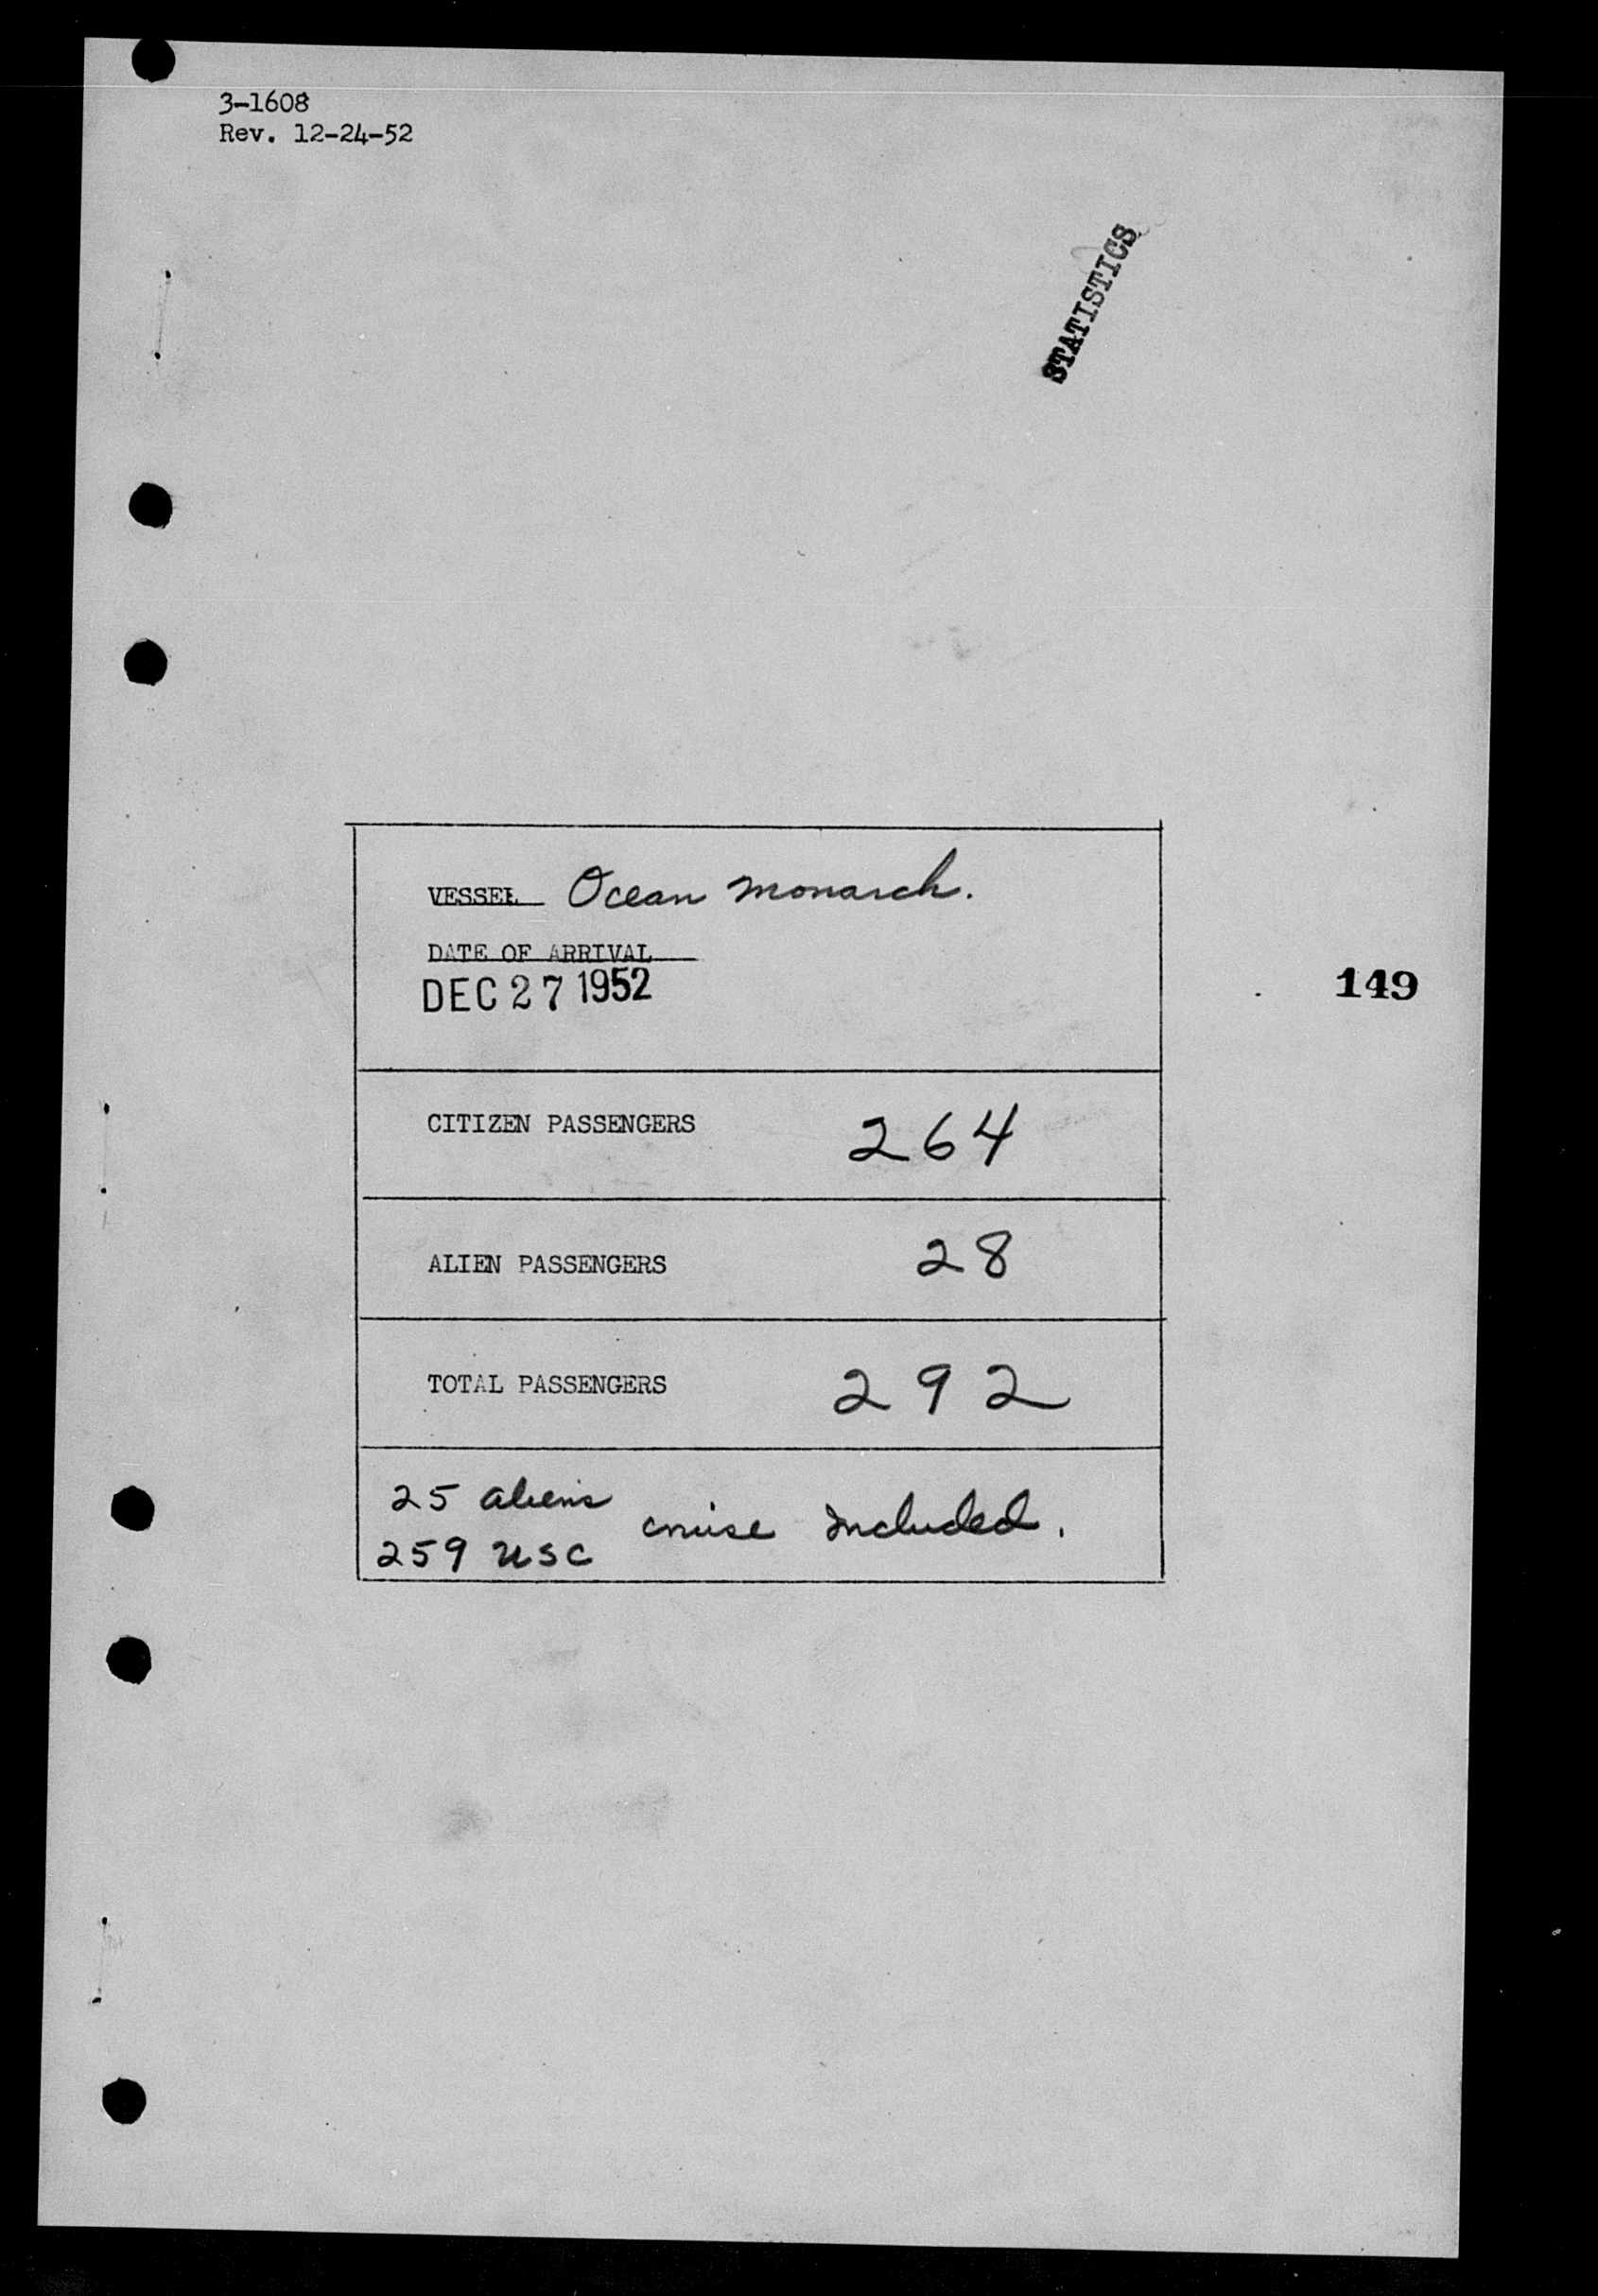 3-1608
Rev. 12-24-52
STATISTICS
VESSEL Ocean Monarch.
DATE OF ARRIVAL
DEC 27 1952
149
CITIZEN PASSENGERS 264
ALIEN PASSENGERS 28
TOTAL PASSENGERS 292
25 aliens
cruise included.
259 USC